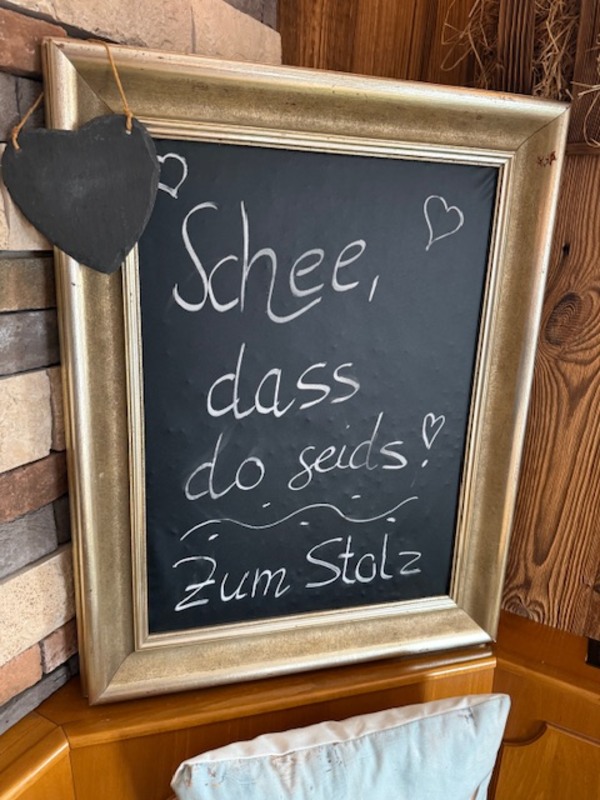 Schee,
dass
do seids!
Zum Stolz